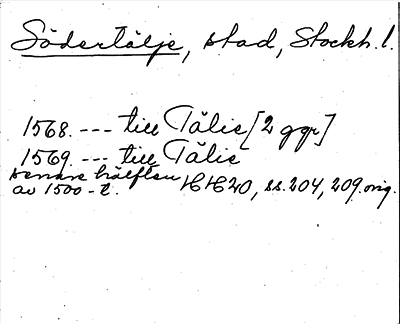 Södertälje, stad, Stockh. l.
1568. --- till Tälie [2 ggr]
1569. --- till Tälie
senare hälften
av 1500-t. HH 20, ss. 204, 209. orig.